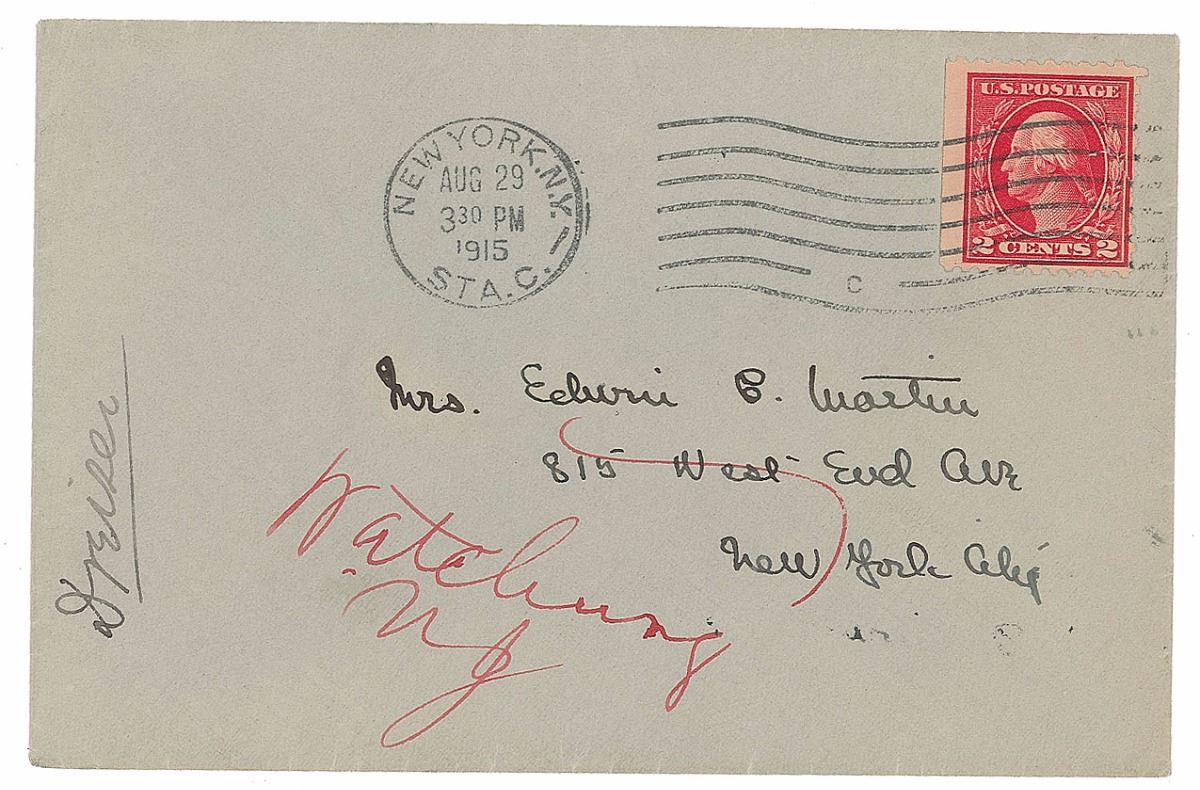 U.S. POSTAGE
2 CENTS 2
NEW YORK, N.Y.
AUG 29
3 30 PM
1915
STA. C.
C
Mrs. Edwin C. Martin
815 West End Ave
New York City
Watchung
N J
Dreiser